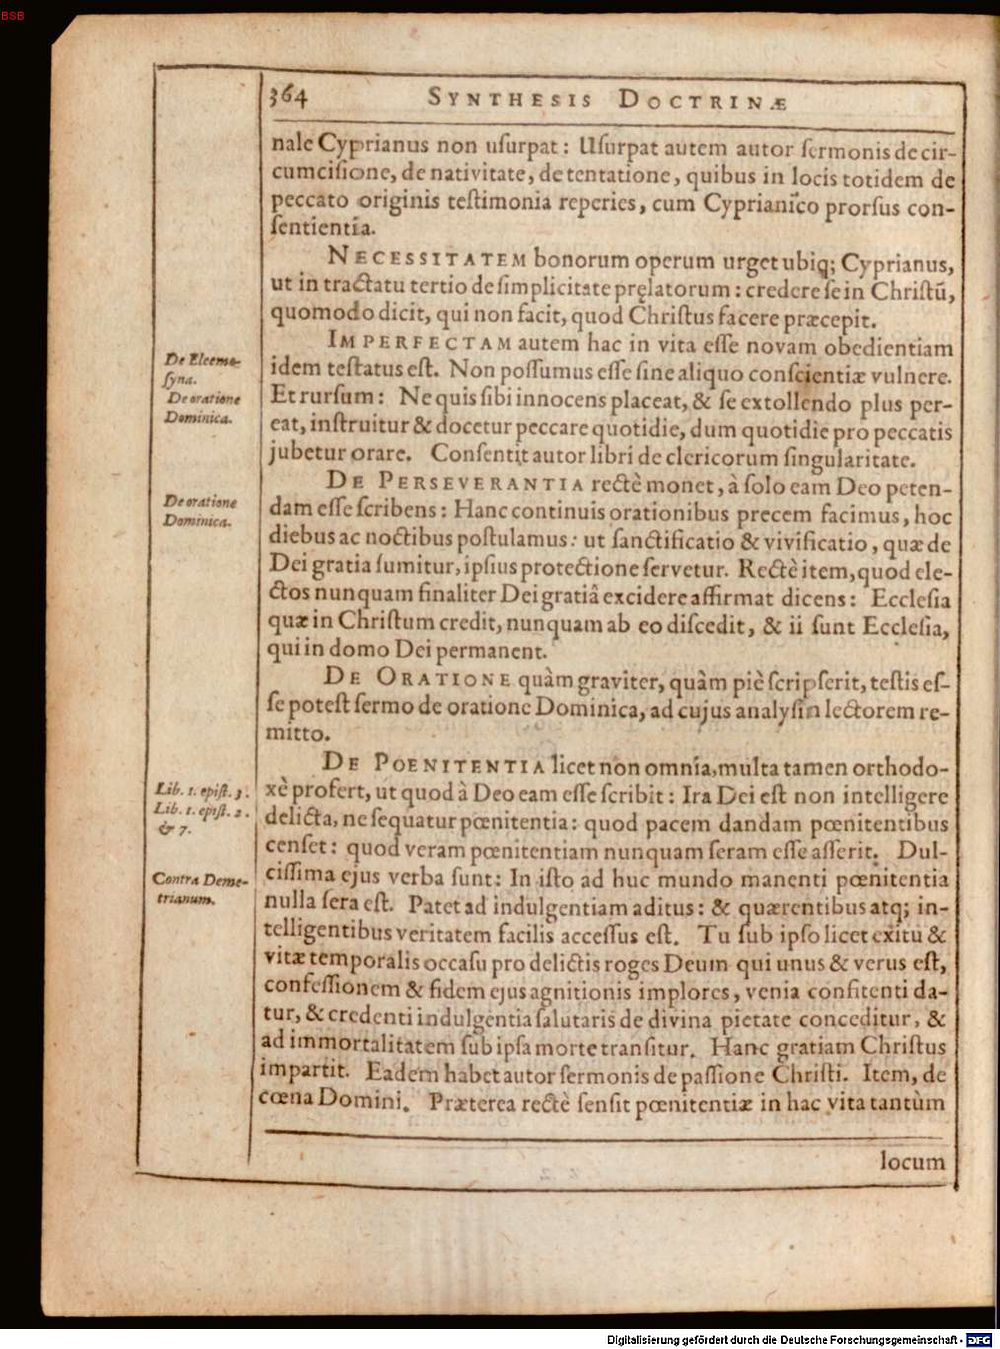 BSB
364 SYNTHESIS DOCTRINÆ
nale Cyprianus non uſurpat: Uſurpat autem autor ſermonis de cir-
cumciſione, de nativitate, de tentatione, quibus in locis totidem de
peccato originis teſtimonia reperies, cum Cyprianico prorſus con-
ſentientia.
NECESSITATEM bonorum operum urget ubiq; Cyprianus,
ut in tractatu tertio de ſimplicitate pręlatorum: credere ſe in Chriſtū,
quomodo dicit, qui non facit, quod Chriſtus facere præcepit.
IMPERFECTAM autem hac in vita eſſe novam obedientiam
De Eleemo-
ſyna.
idem teſtatus eſt. Non poſſumus eſſe ſine aliquo conſcientiæ vulnere.
De oratione
Dominica.
Et rurſum: Ne quis ſibi innocens placeat, & ſe extollendo plus per-
eat, inſtruitur & docetur peccare quotidie, dum quotidie pro peccatis
jubetur orare. Conſentit autor libri de clericorum ſingularitate.
DE PERSEVERANTIA rectè monet, à ſolo eam Deo peten-
De oratione
Dominica.
dam eſſe ſcribens: Hanc continuis orationibus precem facimus, hoc
diebus ac noctibus poſtulamus: ut ſanctificatio & vivificatio, quæ de
Dei gratia ſumitur, ipſius protectione ſervetur. Rectè item, quod ele-
ctos nunquam finaliter Dei gratiâ excidere affirmat dicens: Eccleſia
quæ in Chriſtum credit, nunquam ab eo diſcedit, & ii ſunt Eccleſia,
qui in domo Dei permanent.
DE ORATIONE quàm graviter, quàm piè ſcripſerit, teſtis eſ-
ſe poteſt ſermo de oratione Dominica, ad cujus analyſin lectorem re-
mitto.
DE POENITENTIA licet non omnia, multa tamen orthodo-
Lib. 1. epiſt. 3.
Lib. 1. epiſt. 2.
& 7.
xè profert, ut quod à Deo eam eſſe ſcribit: Ira Dei eſt non intelligere
delicta, ne ſequatur pœnitentia: quod pacem dandam pœnitentibus
cenſet: quod veram pœnitentiam nunquam ſeram eſſe aſſerit. Dul-
Contra Deme-
trianum.
ciſſima ejus verba ſunt: In iſto ad huc mundo manenti pœnitentia
nulla ſera eſt. Patet ad indulgentiam aditus: & quærentibus atq; in-
telligentibus veritatem facilis acceſſus eſt. Tu ſub ipſo licet exitu &
vitæ temporalis occaſu pro delictis roges Deum qui unus & verus eſt,
confeſſionem & fidem ejus agnitionis implores, venia confitenti da-
tur, & credenti indulgentia ſalutaris de divina pietate conceditur, &
ad immortalitatem ſub ipſa morte tranſitur. Hanc gratiam Chriſtus
impartit. Eadem habet autor ſermonis de paſſione Chriſti. Item, de
cœna Domini. Præterea rectè ſenſit pœnitentiæ in hac vita tantùm
locum
Digitalisierung gefördert durch die Deutsche Forschungsgemeinschaft - DFG